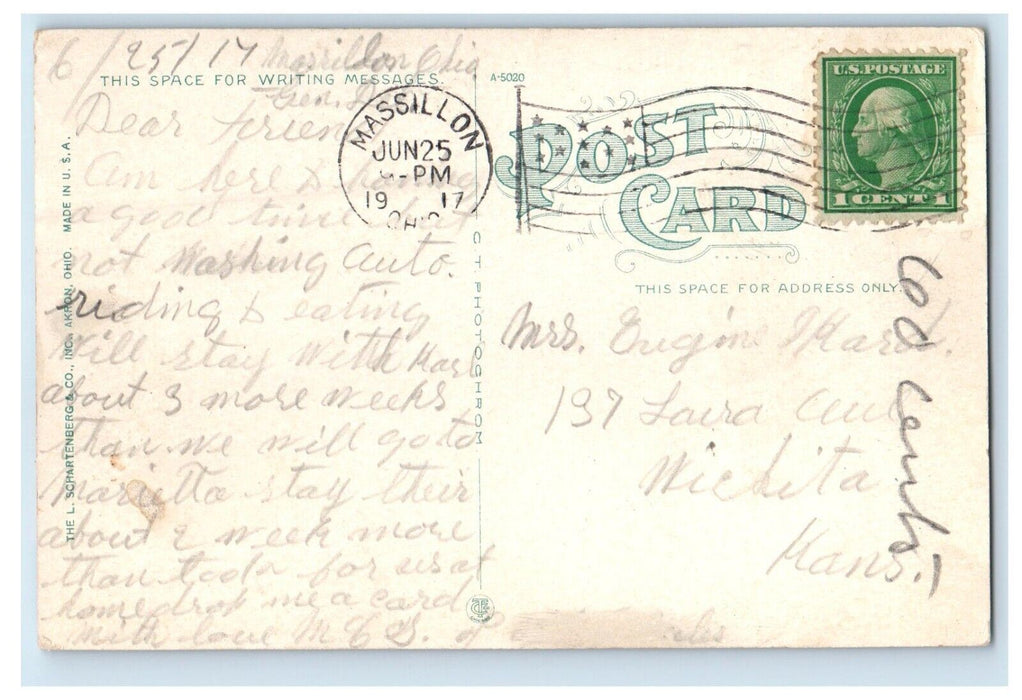 6/25/17 Massillon Ohio
THIS SPACE FOR WRITING MESSAGES.
Gen. D
Dear frien
Am here &
a good time but
not Washing Auto.
riding & eating
Will stay With
about 3 more weeks
than we will go to
Marietta stay their
about 2 week more
than
for us at
home drop me a card
With love M.C.S.
THE L. SCHARTENBERG & CO., INC., AKRON, OHIO. MADE IN U.S.A.
C. T. PHOTOCHROM
A-5020
MASSILLON
JUN 25
-PM
19 17
OHIO
POST
CARD
U.S. POSTAGE
1 CENT 1
THIS SPACE FOR ADDRESS ONLY
Mrs. Eugine
137 Laura Ave
Wichita
Kans.
60 cents